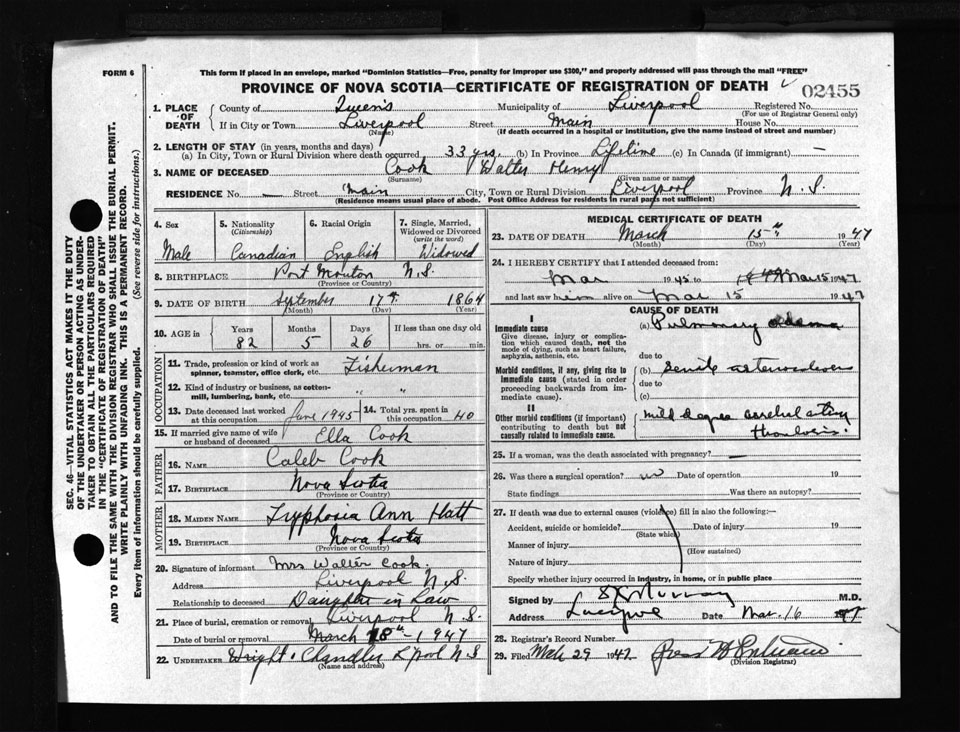 FORM 6
This form if placed in an envelope, marked "Dominion Statistics—Free, penalty for improper use $300," and properly addressed will pass through the mail "FREE"
PROVINCE OF NOVA SCOTIA—CERTIFICATE OF REGISTRATION OF DEATH
02455
1. PLACE OF DEATH
County of Queens Municipality of Liverpool Registered No.
(For use of Registrar General only)
If in City or Town Liverpool Street Main House No.
(Name) (If death occurred in a hospital or institution, give the name instead of street and number)
2. LENGTH OF STAY (in years, months and days)
(a) In City, Town or Rural Division where death occurred 33 yrs. (b) In Province Lifetime (c) In Canada (if immigrant) —
3. NAME OF DECEASED Cook Walter Henry
(Surname) (Given name or names)
RESIDENCE No. — Street Main City, Town or Rural Division Liverpool Province N.S.
(Residence means usual place of abode. Post Office Address for residents in rural parts not sufficient)
4. Sex Male
5. Nationality (Citizenship) Canadian
6. Racial Origin English
7. Single, Married, Widowed or Divorced (write the word) Widowed
8. BIRTHPLACE Port Mouton N.S.
(Province or Country)
9. DATE OF BIRTH September 17th 1864
(Month) (Day) (Year)
10. AGE in Years Months Days If less than one day old
82 5 26 hrs. or min.
OCCUPATION
11. Trade, profession or kind of work as spinner, teamster, office clerk, etc. Fisherman
12. Kind of industry or business, as cotton-mill, lumbering, bank, etc. " "
13. Date deceased last worked at this occupation June 1945
14. Total yrs. spent in this occupation 40
15. If married give name of wife or husband of deceased Ella Cook
FATHER
16. NAME Caleb Cook
17. BIRTHPLACE Nova Scotia
(Province or Country)
MOTHER
18. MAIDEN NAME Tryphosia Ann Hatt
19. BIRTHPLACE Nova Scotia
(Province or Country)
20. Signature of informant Mrs Walter Cook
Address Liverpool N.S.
Relationship to deceased Daughter in Law
21. Place of burial, cremation or removal Liverpool N.S.
Date of burial or removal March 18th 1947
22. UNDERTAKER Wright & Chandler L'pool N.S.
(Name and address)
MEDICAL CERTIFICATE OF DEATH
23. DATE OF DEATH March 15th 1947
(Month) (Day) (Year)
24. I HEREBY CERTIFY that I attended deceased from:
Mar 1945 to Mar 15 1947
and last saw him alive on Mar 15 1947
CAUSE OF DEATH
I
Immediate cause
Give disease, injury or complication which caused death, not the mode of dying, such as heart failure, asphyxia, asthenia, etc.
(a) Pulmonary edema
due to
Morbid conditions, if any, giving rise to immediate cause (stated in order proceeding backwards from immediate cause).
(b) Senile arteriosclerosis
due to
(c)
II
Other morbid conditions (if important) contributing to death but not causally related to immediate cause.
mild degree cerebral artery
thrombosis.
25. If a woman, was the death associated with pregnancy? —
26. Was there a surgical operation? no Date of operation 19
State findings Was there an autopsy?
27. If death was due to external causes (violence) fill in also the following:—
Accident, suicide or homicide? Date of injury 19
(State which)
Manner of injury
(How sustained)
Nature of injury
Specify whether injury occurred in industry, in home, or in public place
Signed by Murray M.D.
Address Liverpool Date Mar. 16 1947
28. Registrar's Record Number
29. Filed Mch 29 1947
(Division Registrar)
SEC. 46—VITAL STATISTICS ACT MAKES IT THE DUTY
OF THE UNDERTAKER OR PERSON ACTING AS UNDER-
TAKER TO OBTAIN ALL THE PARTICULARS REQUIRED
IN THE "CERTIFICATE OF REGISTRATION OF DEATH" AND TO FILE THE SAME WITH THE DIVISION REGISTRAR WHO SHALL ISSUE THE BURIAL PERMIT.
WRITE PLAINLY WITH UNFADING INK. THIS IS A PERMANENT RECORD.
Every item of information should be carefully supplied. (See reverse side for instructions.)